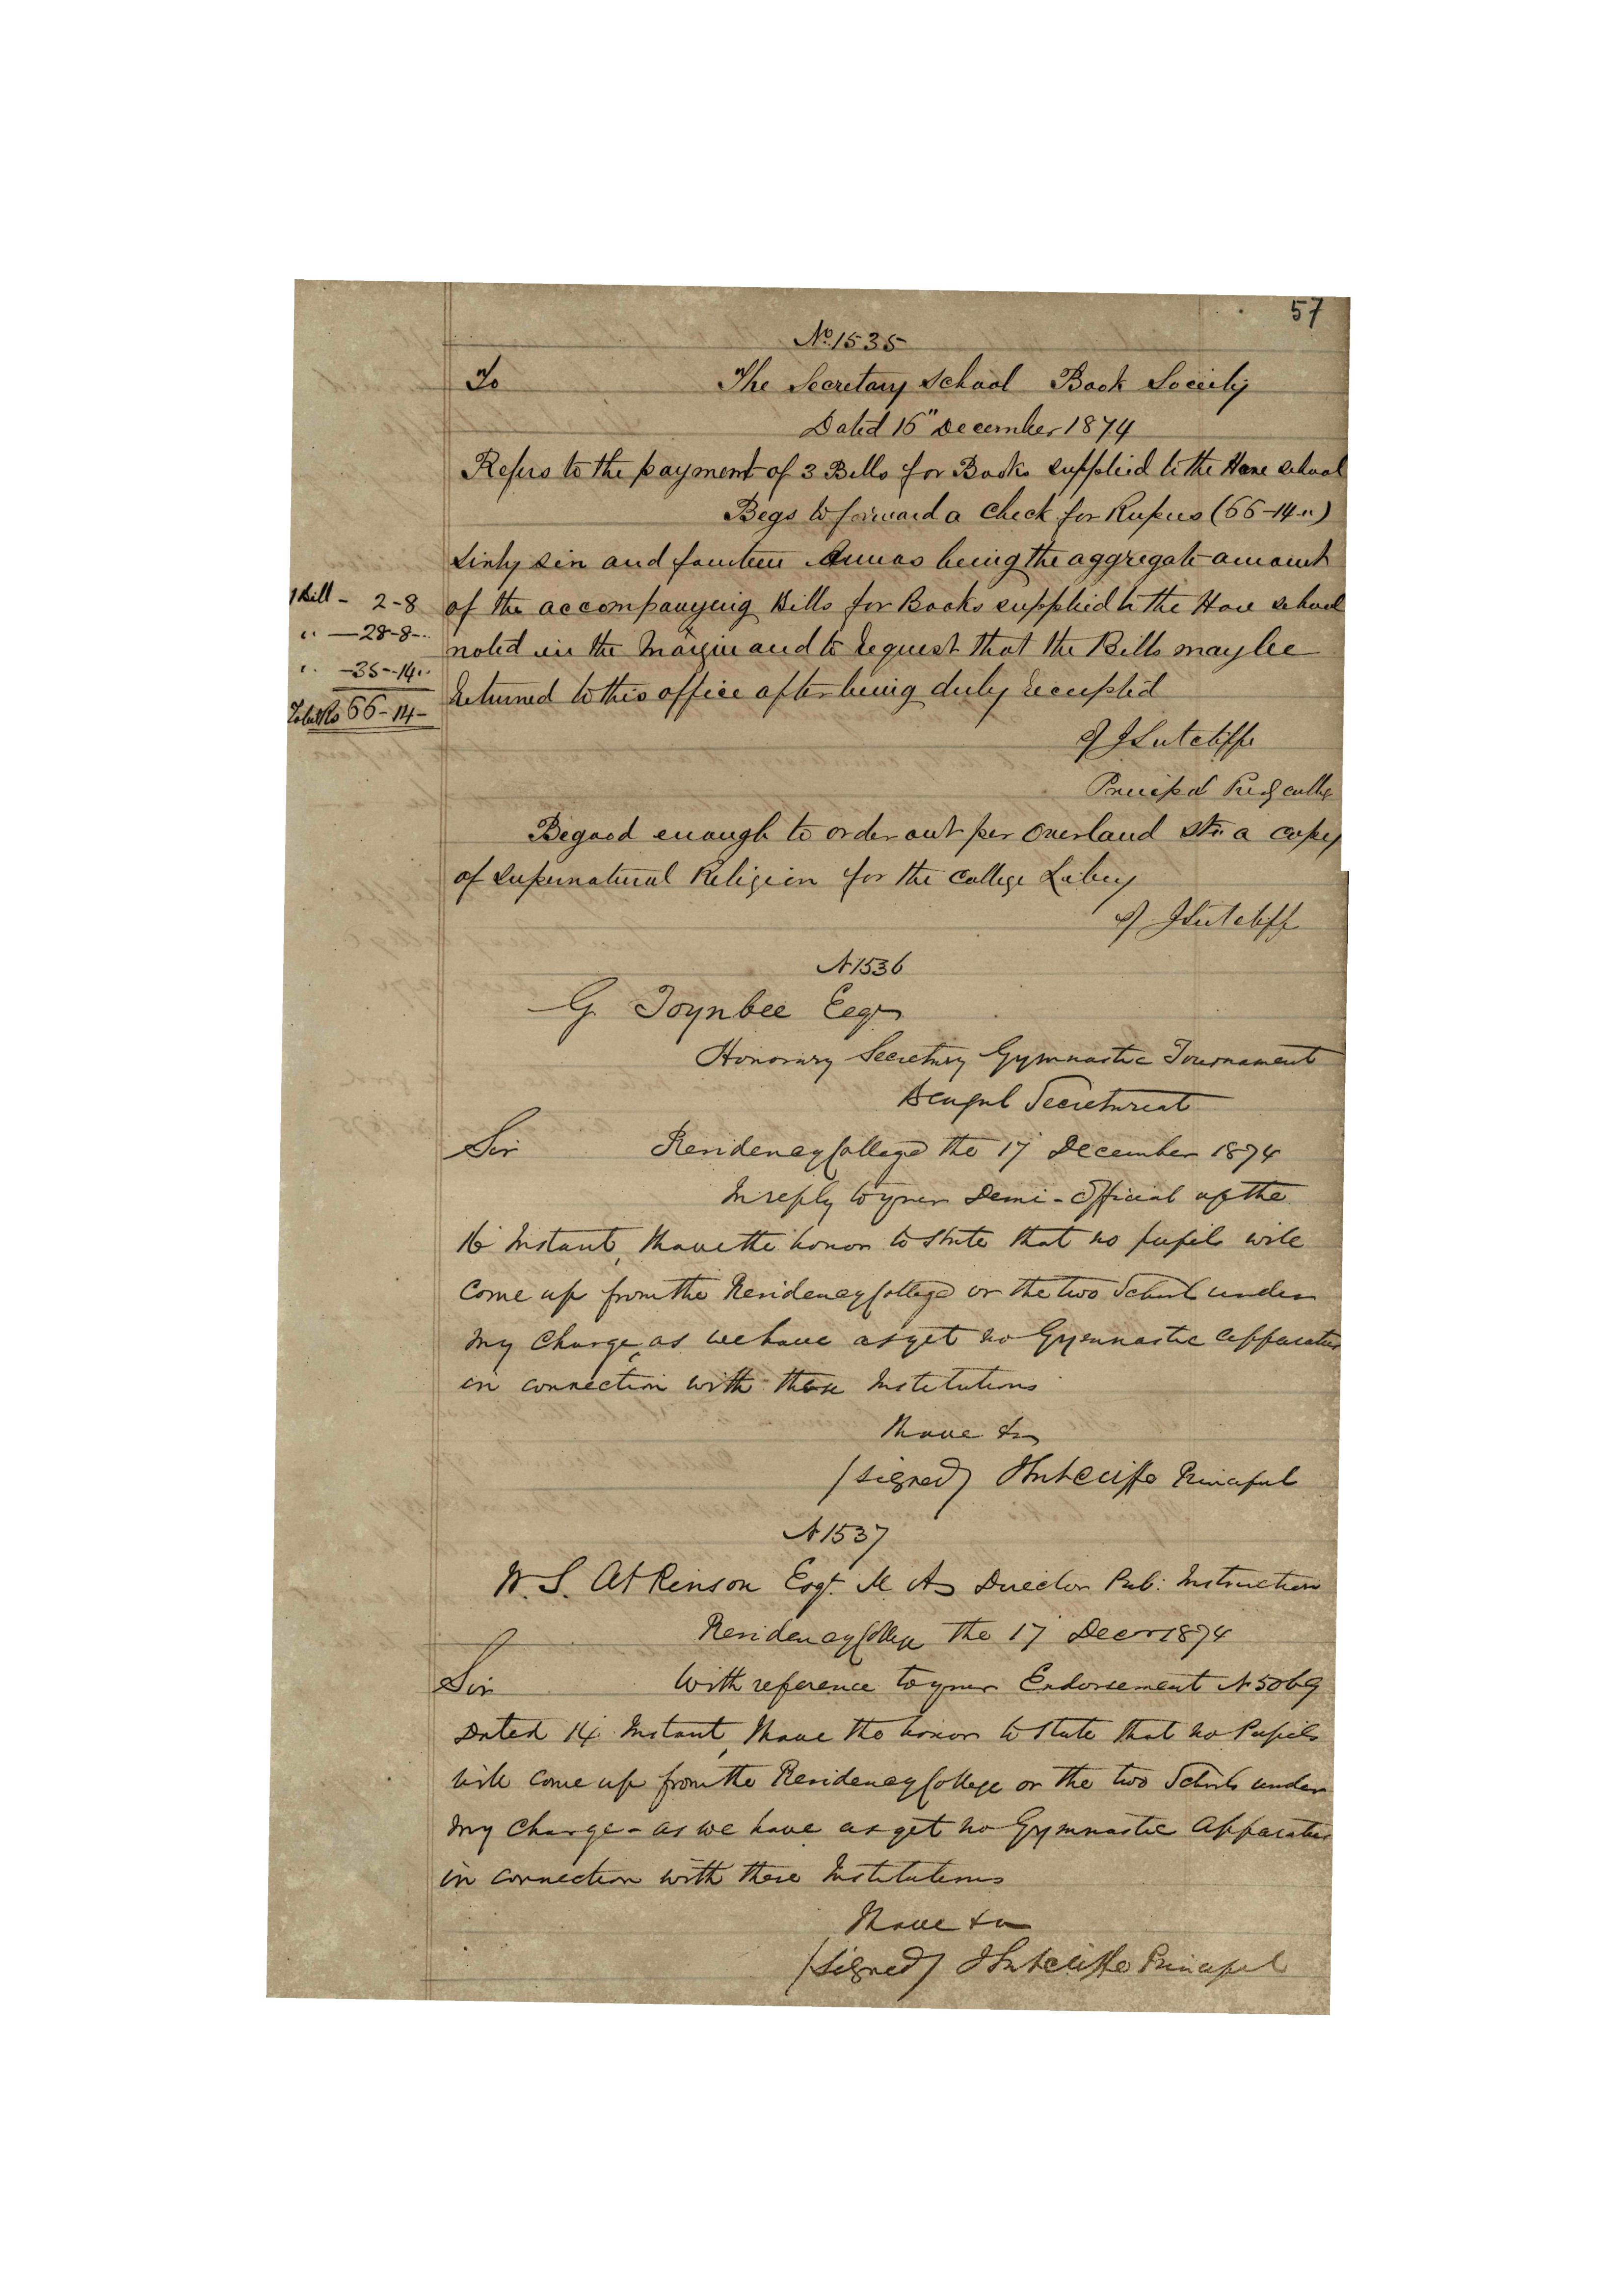 57
No. 1535
To The Secretary School Book Society
Dated 16" December 1874
Refers to the payment of 3 Bills for Books supplied to the Hare School
Begs to forward a Check for Rupees (66-14-")
Sixty six and fourteen Annas being the aggregate amount
1 Bill - 2-8
of the accompanying Bills for Books supplied to the Hare School
" — 28-8-"
noted in the Margin and to request that the Bills may be
" — 35-14"
returned to this office after being duly receipted
Total Rs 66-14-
J Sutcliffe
Principal
Be good enough to order out per Overland a copy
of Supernatural Religion for the College Libry
J Sutcliff
N 1536
G. Toynbee Esqr
Honorary Secretary Gymnastic Tournament
Bengal Secretariat
Sir Presidency College the 17 December 1874
In reply to your Demi-Official of the
16 Instant, I have the honor to state that no pupils will
come up from the Presidency College or the two Schools under
my Charge, as we have as yet no Gymnastic Apparatus
in connection with these Institutions
I have &c
(Signed) J Sutcliffe Principal
N 1537
W. S. Atkinson Esqr. M A Director Pub: Instruction
Presidency College the 17 Decr 1874
Sir With reference to your Endorsement N 5069
Dated 14 Instant, I have the honor to state that no Pupils
will come up from the Presidency College or the two Schools under
my Charge - as we have as yet no Gymnastic Apparatus
in connection with these Institutions
I have &c
(Signed) J Sutcliffe Principal